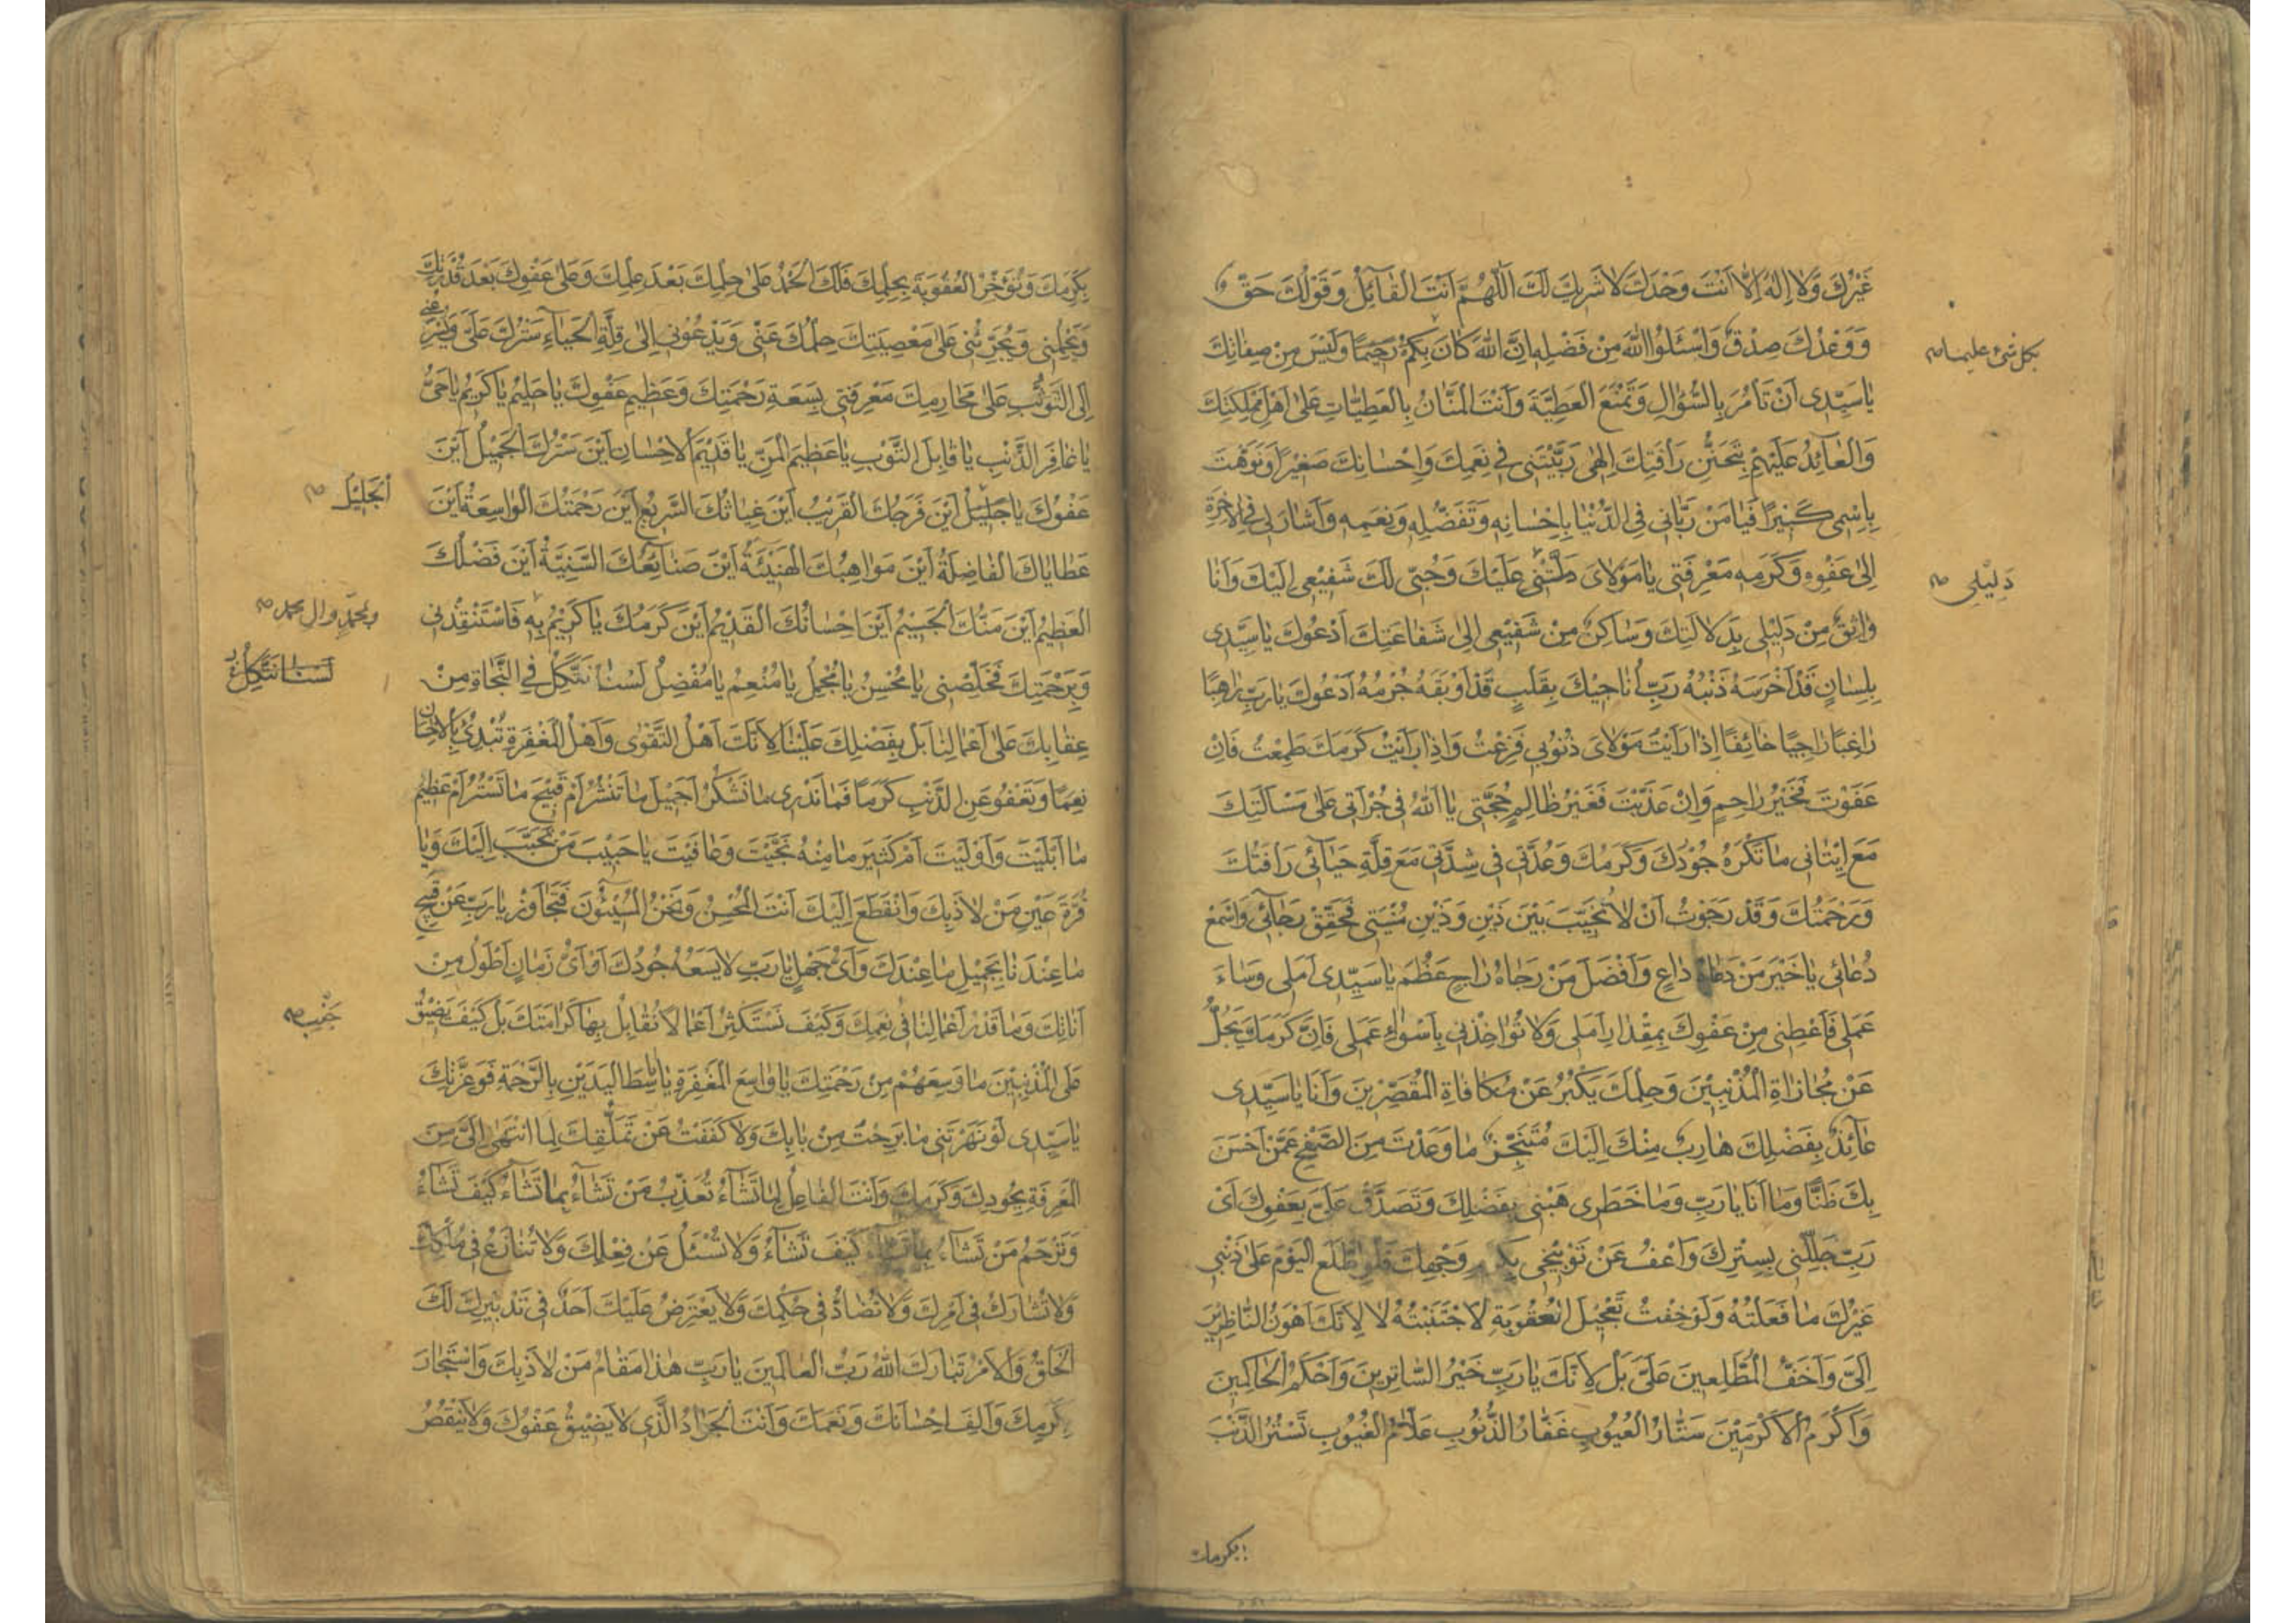 غَيْرُكَ وَلا إِلهَ إِلّا أَنْتَ وَحْدَكَ لا شَرِيكَ لَكَ اَللّهُمَّ أَنْتَ الْقَآئِلُ وَقَوْلُكَ حَقٌّ
وَوَعْدُكَ صِدْقٌ وَاسْئَلُوا اللهَ مِنْ فَضْلِهِ إِنَّ اللهَ كانَ بِكُمْ رَحِيمًا وَلَيْسَ مِنْ صِفاتِكَ
بكل شئ عليما صح
يا سَيِّدِى أَنْ تَأْمُرَ بِالسُّؤالِ وَتَمْنَعَ الْعَطِيَّةَ وَأَنْتَ الْمَنّانُ بِالْعَطِيّاتِ عَلى أَهْلِ مَمْلِكَتِكَ
وَالْعآئِدُ عَلَيْهِمْ بِتَحَنُّنِ رَأْفَتِكَ إِلهِى رَبَّيْتَنِى فِى نِعَمِكَ وَإِحْسانِكَ صَغِيرًا وَنَوَّهْتَ
بِاسْمِى كَبِيرًا فَيا مَنْ رَبّانِى فِى الدُّنْيا بِإِحْسانِهِ وَتَفَضُّلِهِ وَنِعَمِهِ وَأَشارَ لِى فِى الْآخِرَةِ
إِلى عَفْوِهِ وَكَرَمِهِ مَعْرِفَتِى يا مَوْلاىَ دَلَّتْنِى عَلَيْكَ وَحُبِّى لَكَ شَفِيعِى إِلَيْكَ وَأَنَا
دَلِيلِى صح
واثِقٌ مِنْ دَلِيلِى بِدَلالَتِكَ وَساكِنٌ مِنْ شَفِيعِى إِلى شَفاعَتِكَ أَدْعُوكَ يا سَيِّدِى
بِلِسانٍ قَدْ أَخْرَسَهُ ذَنْبُهُ رَبِّ أُناجِيكَ بِقَلْبٍ قَدْ أَوْبَقَهُ جُرْمُهُ أَدْعُوكَ يا رَبِّ راهِبًا
راغِبًا راجِيًا خائِفًا إِذا رَأَيْتُ مَوْلاىَ ذُنُوبِى فَزِعْتُ وَإِذا رَأَيْتُ كَرَمَكَ طَمِعْتُ فَإِنْ
عَفَوْتَ فَخَيْرُ راحِمٍ وَإِنْ عَذَّبْتَ فَغَيْرُ ظالِمٍ حُجَّتِى يا اَللهُ فِى جُرْأَتِى عَلى مَسْأَلَتِكَ
مَعَ إِتْيانِى ما تَكْرَهُ جُودُكَ وَكَرَمُكَ وَعُدَّتِى فِى شِدَّتِى مَعَ قِلَّةِ حَيآئِى رَأْفَتُكَ
وَرَحْمَتُكَ وَقَدْ رَجَوْتُ أَنْ لا تُخَيِّبَ بَيْنَ ذَيْنِ وَذَيْنِ مُنْيَتِى فَحَقِّقْ رَجآئِى وَاسْمَعْ
دُعائِى يا خَيْرَ مَنْ دَعاهُ داعٍ وَأَفْضَلَ مَنْ رَجاهُ راجٍ عَظُمَ يا سَيِّدِى أَمَلِى وَساءَ
عَمَلِى فَأَعْطِنِى مِنْ عَفْوِكَ بِمِقْدارِ أَمَلِى وَلا تُؤاخِذْنِى بِأَسْوَءِ عَمَلِى فَإِنَّ كَرَمَكَ يَجِلُّ
عَنْ مُجازاةِ الْمُذْنِبِينَ وَحِلْمَكَ يَكْبُرُ عَنْ مُكافاةِ الْمُقَصِّرِينَ وَأَنَا يا سَيِّدِى
عآئِذٌ بِفَضْلِكَ هارِبٌ مِنْكَ إِلَيْكَ مُتَنَجِّزٌ ما وَعَدْتَ مِنَ الصَّفْحِ عَمَّنْ أَحْسَنَ
بِكَ ظَنًّا وَما أَنَا يا رَبِّ وَما خَطَرِى هَبْنِى بِفَضْلِكَ وَتَصَدَّقْ عَلَىَّ بِعَفْوِكَ أَىْ
رَبِّ جَلِّلْنِى بِسِتْرِكَ وَاعْفُ عَنْ تَوْبِيخِى بِكَرَمِ وَجْهِكَ فَلَوِ اطَّلَعَ الْيَوْمَ عَلى ذَنْبِى
غَيْرُكَ ما فَعَلْتُهُ وَلَوْ خِفْتُ تَعْجِيلَ الْعُقُوبَةِ لَاجْتَنَبْتُهُ لا لِأَنَّكَ أَهْوَنُ النّاظِرِينَ
إِلَىَّ وَأَخَفُّ الْمُطَّلِعِينَ عَلَىَّ بَلْ لِأَنَّكَ يا رَبِّ خَيْرُ السّاتِرِينَ وَأَحْكَمُ الْحاكِمِينَ
وَأَكْرَمُ الْأَكْرَمِينَ سَتّارُ الْعُيُوبِ غَفّارُ الذُّنُوبِ عَلّامُ الْغُيُوبِ تَسْتُرُ الذَّنْبَ
بكرمك
بِكَرَمِكَ وَتُؤَخِّرُ الْعُقُوبَةَ بِحِلْمِكَ فَلَكَ الْحَمْدُ عَلى حِلْمِكَ بَعْدَ عِلْمِكَ وَعَلى عَفْوِكَ بَعْدَ قُدْرَتِكَ
وَيَحْمِلُنِى وَيُجَرِّئُنِى عَلى مَعْصِيَتِكَ حِلْمُكَ عَنِّى وَيَدْعُونِى إِلى قِلَّةِ الْحَيآءِ سَتْرُكَ عَلَىَّ وَيُسْرِعُنِى
إِلَى التَّوَثُّبِ عَلى مَحارِمِكَ مَعْرِفَتِى بِسَعَةِ رَحْمَتِكَ وَعَظِيمِ عَفْوِكَ يا حَلِيمُ يا كَرِيمُ يا حَىُّ
يا غافِرَ الذَّنْبِ يا قابِلَ التَّوْبِ يا عَظِيمَ الْمَنِّ يا قَدِيمَ الْإِحْسانِ أَيْنَ سَتْرُكَ الْجَمِيلُ أَيْنَ
عَفْوُكَ يا جَلِيلُ أَيْنَ فَرَجُكَ الْقَرِيبُ أَيْنَ غِياثُكَ السَّرِيعُ أَيْنَ رَحْمَتُكَ الْواسِعَةُ أَيْنَ
اَلْجَلِيلُ صح
عَطاياكَ الْفاضِلَةُ أَيْنَ مَواهِبُكَ الْهَنِيئَةُ أَيْنَ صَنآئِعُكَ السَّنِيَّةُ أَيْنَ فَضْلُكَ
الْعَظِيمُ أَيْنَ مَنُّكَ الْجَسِيمُ أَيْنَ إِحْسانُكَ الْقَدِيمُ أَيْنَ كَرَمُكَ يا كَرِيمُ بِهِ فَاسْتَنْقِذْنِى
وبمحمد وال محمد صح
وَبِرَحْمَتِكَ فَخَلِّصْنِى يا مُحْسِنُ يا مُجْمِلُ يا مُنْعِمُ يا مُفْضِلُ لَسْنا نَتَّكِلُ فِى النَّجاةِ مِنْ
لَسْنا نَتَّكِلُ
عِقابِكَ عَلى أَعْمالِنا بَلْ بِفَضْلِكَ عَلَيْنا لِأَنَّكَ أَهْلُ التَّقْوى وَأَهْلُ الْمَغْفِرَةِ تُبْدِئُ بِالْإِحْسانِ
نِعَمًا وَتَعْفُو عَنِ الذَّنْبِ كَرَمًا فَما نَدْرِى ما نَشْكُرُ أَجَمِيلَ ما تَنْشُرُ أَمْ قَبِيحَ ما تَسْتُرُ أَمْ عَظِيمَ
ما أَبْلَيْتَ وَأَوْلَيْتَ أَمْ كَثِيرَ ما مِنْهُ نَجَّيْتَ وَعافَيْتَ يا حَبِيبَ مَنْ تَحَبَّبَ إِلَيْكَ وَيا
قُرَّةَ عَيْنِ مَنْ لاذَ بِكَ وَانْقَطَعَ إِلَيْكَ أَنْتَ الْمُحْسِنُ وَنَحْنُ الْمُسِيئُونَ فَتَجاوَزْ يا رَبِّ عَنْ قَبِيحِ
ما عِنْدَنا بِجَمِيلِ ما عِنْدَكَ وَأَىُّ جَهْلٍ يا رَبِّ لا يَسَعُهُ جُودُكَ أَوْ أَىُّ زَمانٍ أَطْوَلُ مِنْ
أَناتِكَ وَما قَدْرُ أَعْمالِنا فِى نِعَمِكَ وَكَيْفَ نَسْتَكْثِرُ أَعْمالًا نُقابِلُ بِها كَرامَتَكَ بَلْ كَيْفَ يَضِيقُ
جَنْبِ صح
عَلَى الْمُذْنِبِينَ ما وَسِعَهُمْ مِنْ رَحْمَتِكَ يا واسِعَ الْمَغْفِرَةِ يا باسِطَ الْيَدَيْنِ بِالرَّحْمَةِ فَوَعِزَّتِكَ
يا سَيِّدِى لَوْ نَهَرْتَنِى ما بَرِحْتُ مِنْ بابِكَ وَلا كَفَفْتُ عَنْ تَمَلُّقِكَ لِمَا انْتَهى إِلَىَّ مِنَ
الْمَعْرِفَةِ بِجُودِكَ وَكَرَمِكَ وَأَنْتَ الْفاعِلُ لِما تَشآءُ تُعَذِّبُ مَنْ تَشآءُ بِما تَشآءُ كَيْفَ تَشآءُ
وَتَرْحَمُ مَنْ تَشآءُ بِما تَشآءُ كَيْفَ تَشآءُ وَلا تُسْئَلُ عَنْ فِعْلِكَ وَلا تُنازَعُ فِى مُلْكِكَ
وَلا تُشارَكُ فِى أَمْرِكَ وَلا تُضادُّ فِى حُكْمِكَ وَلا يَعْتَرِضُ عَلَيْكَ أَحَدٌ فِى تَدْبِيرِكَ لَكَ
الْخَلْقُ وَالْأَمْرُ تَبارَكَ اللهُ رَبُّ الْعالَمِينَ يا رَبِّ هذا مَقامُ مَنْ لاذَ بِكَ وَاسْتَجارَ
بِكَرَمِكَ وَأَلِفَ إِحْسانَكَ وَنِعَمَكَ وَأَنْتَ الْجَوادُ الَّذِى لا يَضِيقُ عَفْوُكَ وَلا يَنْقُصُ